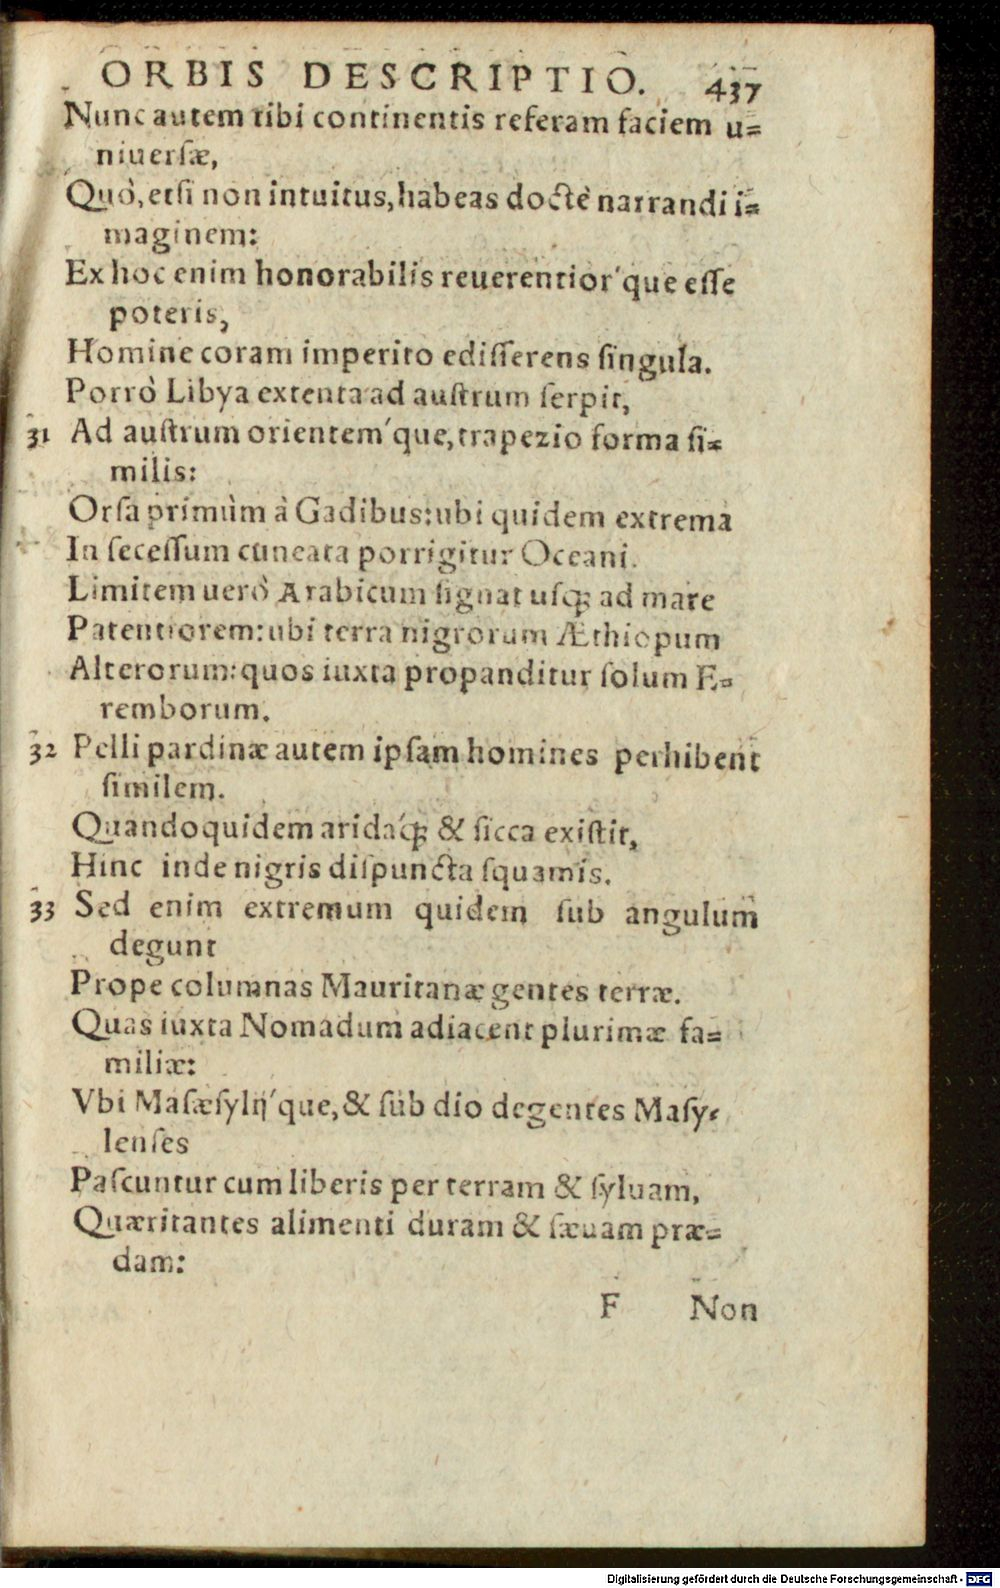 ORBIS DESCRIPTIO. 437
Nunc autem tibi continentis referam faciem u=
niuersæ,
Quò, etsi non intuitus, habeas doctè narrandi i=
maginem:
Ex hoc enim honorabilis reuerentior'que esse
poteris,
Homine coram imperito edisserens singula.
Porrò Libya extenta ad austrum serpit,
31 Ad austrum orientem'que, trapezio forma si=
milis:
Orsa primùm à Gadibus: ubi quidem extrema
In secessum cuneata porrigitur Oceani.
Limitem uerò Arabicum signat usq; ad mare
Patentiorem: ubi terra nigrorum Æthiopum
Alterorum: quos iuxta propanditur solum E=
remborum.
32 Pelli pardinæ autem ipsam homines perhibent
similem.
Quandoquidem arida'q; & sicca existit,
Hinc inde nigris dispuncta squamis.
33 Sed enim extremum quidem sub angulum
degunt
Prope columnas Mauritanæ gentes terræ.
Quas iuxta Nomadum adiacent plurimæ fa=
miliæ:
Vbi Masæsylij'que, & sub dio degentes Masy=
lenses
Pascuntur cum liberis per terram & syluam,
Quæritantes alimenti duram & sæuam præ=
dam:
F Non
Digitalisierung gefördert durch die Deutsche Forschungsgemeinschaft - DFG